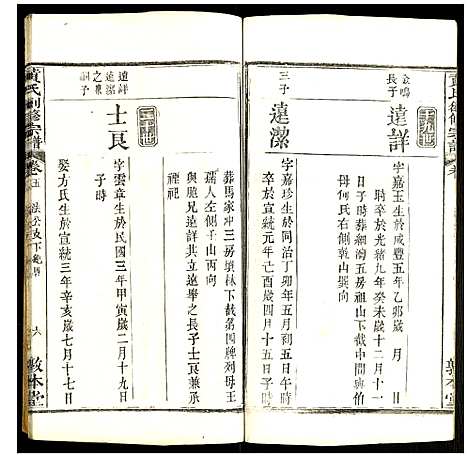 金鳴
長子
達詳
字嘉玉生於咸豐五年乙卯歲 月 日
時卒於光緒九年癸未歲十二月十一
日子時葬細灣五房祖山下截中間與伯
母何氏右側乾山巽向
三子
達潔
字嘉珍生於同治丁卯年五月初五日辰時
卒於宣統元年己酉歲四月十五日子時
葬馬家冲三房墳林下截第四牌列母王
孺人左側子山丙向
與胞兄達詳共立達舉之長子士良兼承
禋祀
達詳
達潔
之兼
祧子
士良
字雲章生於民國三年甲寅歲二月十九日
子時
娶方氏生於宣統三年辛亥歲七月十七日
黃氏創修宗譜
卷五
六
敦本堂